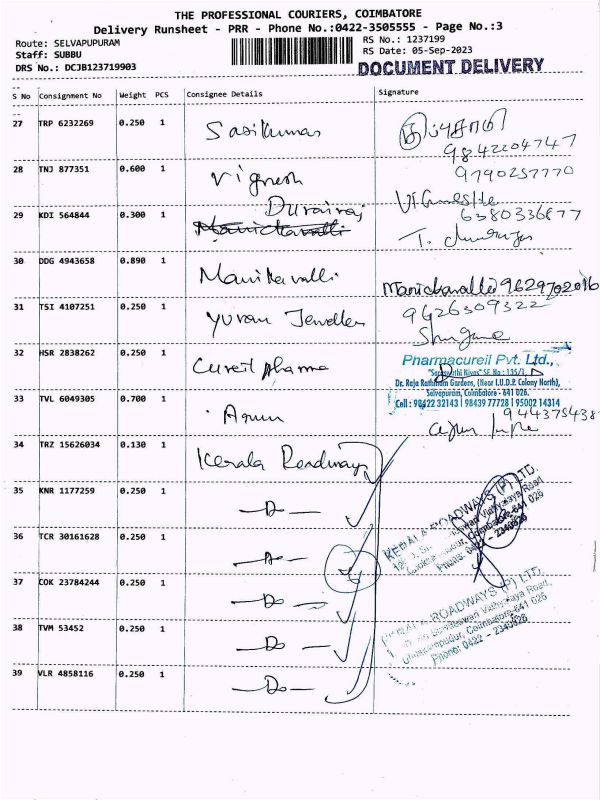 THE PROFESSIONAL COURIERS, COIMBATORE
Delivery Runsheet - PRR - Phone No.:0422-3505555 - Page No.:3
Route: SELVAPUPURAM
Staff: SUBBU
DRS No.: DCJB123719903
RS No.: 1237199
RS Date: 05-Sep-2023
DOCUMENT DELIVERY
S No Consignment No Weight PCS Consignee Details Signature
27 TRP 6232269 0.250 1 Sasikumar
9842204747
28 TNJ 877351 0.600 1 Vignesh 9790257770
29 KDI 564844 0.300 1 Durairaj 6380336877
30 DDG 4943658 0.890 1 Manikavalli 9629702016
31 TSI 4107251 0.250 1 Yuvan Jeweller 9626309322
32 HSR 2838262 0.250 1 Cureil pharma
Pharmacureil Pvt. Ltd.,
Dr. Raja Rathinam Gardens, (Near I.U.D.P. Colony North),
Selvapuram, Coimbatore - 641 026.
Cell : 98422 32143 | 98439 77728 | 95002 14314
33 TVL 6049305 0.700 1 Arun 9443754381
34 TRZ 15626034 0.130 1 Kerala Roadways
35 KNR 1177259 0.250 1 -Do-
36 TCR 30161628 0.250 1 -Do-
KERALA ROADWAYS (P) LTD.
Phone: 0422 - 2340626
37 COK 23784244 0.250 1 -Do-
38 TVM 53452 0.250 1 -Do-
KERALA ROADWAYS (P) LTD.
Phone: 0422 - 2340626
39 VLR 4858116 0.250 1 -Do-